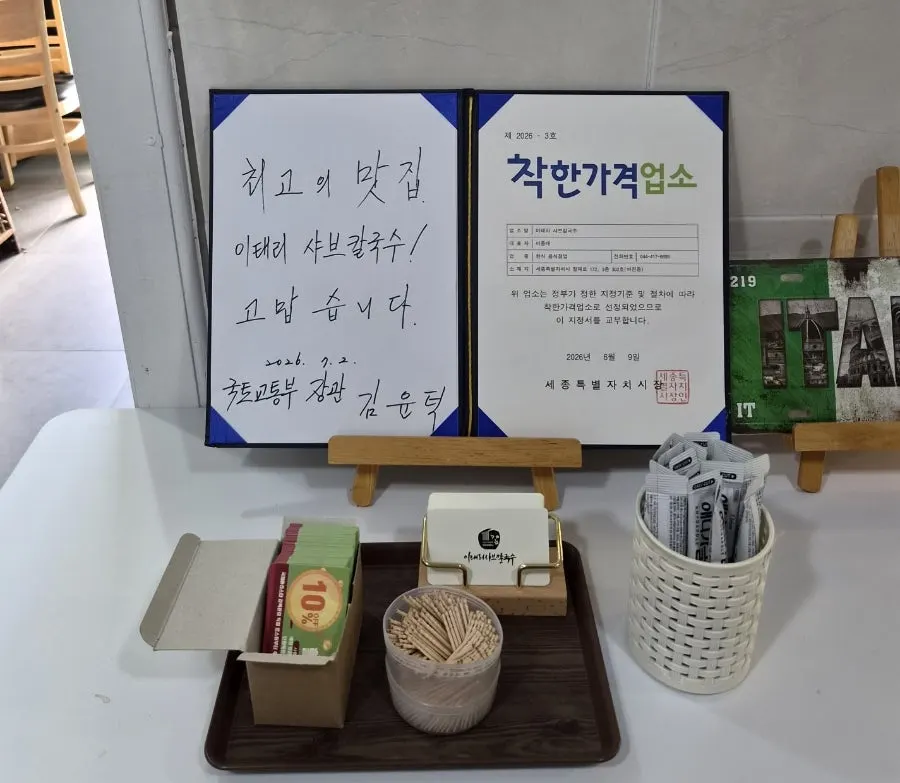 최고의 맛집.
이태리 샤브칼국수!
고맙습니다.
2026. 7. 2.
국토교통부 장관 김윤덕
제 2026 - 3호
착한가격업소
업 소 명 이태리 샤브칼국수
대 표 자
업 종 한식 음식점업 전화번호
소 재 지 세종특별자치시
위 업소는 정부가 정한 지정기준 및 절차에 따라
착한가격업소로 선정되었으므로
이 지정서를 교부합니다.
2026년 6월 9일
세종특별자치시장
세종특
별자치
시장인
219
ITA
IT
10%
OFF
이태리샤브칼국수